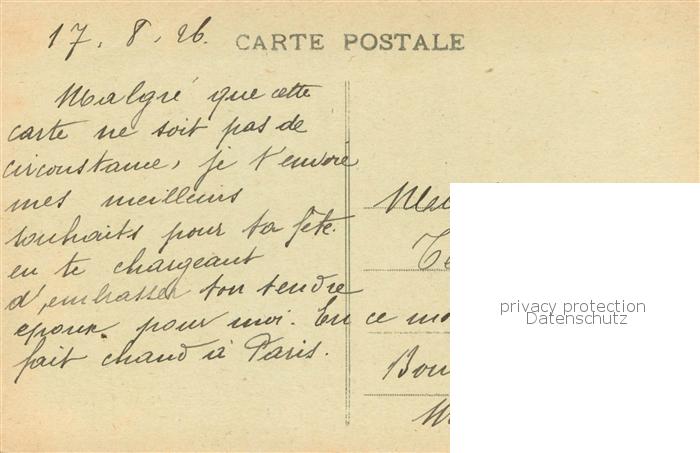 17. 8. 26.
CARTE POSTALE
Malgré que cette
carte ne soit pas de
circonstance, je t'envoie
mes meilleurs
souhaits pour ta fête.
en te chargeant
d'embrasser ton tendre
époux pour moi. En ce mo
fait chaud à Paris.
privacy protection
Datenschutz